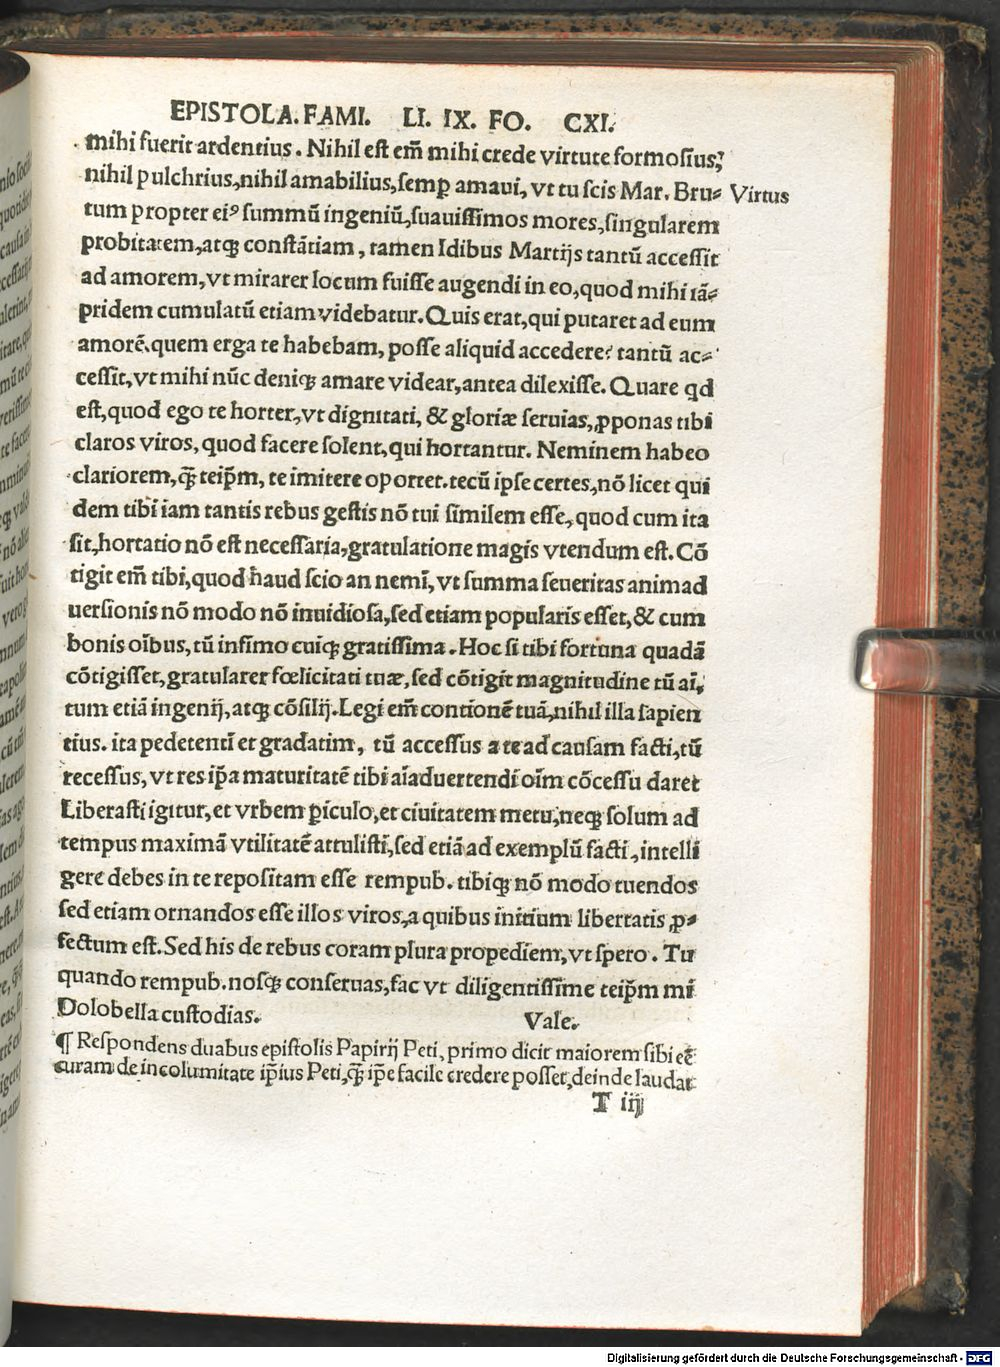 EPISTOLA. FAMI. LI. IX. FO. CXI.
mihi fuerit ardentius. Nihil est em̃ mihi crede virtute formosius,
nihil pulchrius, nihil amabilius, semp̱ amaui, vt tu scis Mar. Bru- Virtus
tum propter eiꝰ summũ ingeniũ, suauissimos mores, singularem
probitatem, atqꝫ constãtiam, tamen Idibus Martijs tantũ accessit
ad amorem, vt mirarer locum fuisse augendi in eo, quod mihi iã-
pridem cumulatũ etiam videbatur. Quis erat, qui putaret ad eum
amorẽ, quem erga te habebam, posse aliquid accedere? tantũ ac-
cessit, vt mihi nũc deniqꝫ amare videar, antea dilexisse. Quare qd
est, quod ego te horter, vt dignitati, & gloriæ seruias, ꝓponas tibi
claros viros, quod facere solent, qui hortantur. Neminem habeo
clariorem, q̃ꝫ teip̃m, te imitere oportet. tecũ ipse certes, nõ licet qui
dem tibi iam tantis rebus gestis nõ tui similem esse, quod cum ita
sit, hortatio nõ est necessaria, gratulatione magis vtendum est. Cõ
tigit em̃ tibi, quod haud scio an nemĩ, vt summa seueritas animad
uersionis nõ modo nõ inuidiosa, sed etiam popularis esset, & cum
bonis oĩbus, tũ infimo cuiqꝫ gratissima. Hoc si tibi fortuna quadã
cõtigisset, gratularer fœlicitati tuæ, sed cõtigit magnitudine tũ aĩ,
tum etiã ingenij, atqꝫ cõsilij. Legi em̃ contionẽ tuã, nihil illa sapien
tius. ita pedetentĩ et gradatim, tũ accessus a te ad causam facti, tũ
recessus, vt res ip̃a maturitatẽ tibi aĩaduertendi oĩm cõcessu daret
Liberasti igitur, et vrbem ꝑiculo, et ciuitatem metu, neqꝫ solum ad
tempus maximã vtilitatẽ attulisti, sed etiã ad exemplũ facti, intelli
gere debes in te repositam esse rempub. tibiqꝫ nõ modo tuendos
sed etiam ornandos esse illos viros, a quibus initium libertatis ꝓ-
fectum est. Sed his de rebus coram plura propediem, vt spero. Tu
quando rempub. nosqꝫ conseruas, fac vt diligentissime teip̃m mi
Dolobella custodias. Vale.
¶ Respondens duabus epistolis Papirij Peti, primo dicit maiorem sibi eẽ
curam de incolumitate ip̃ius Peti, q̃ꝫ ip̃e facile credere posset, deinde laudat
T iij
Digitalisierung gefördert durch die Deutsche Forschungsgemeinschaft - DFG